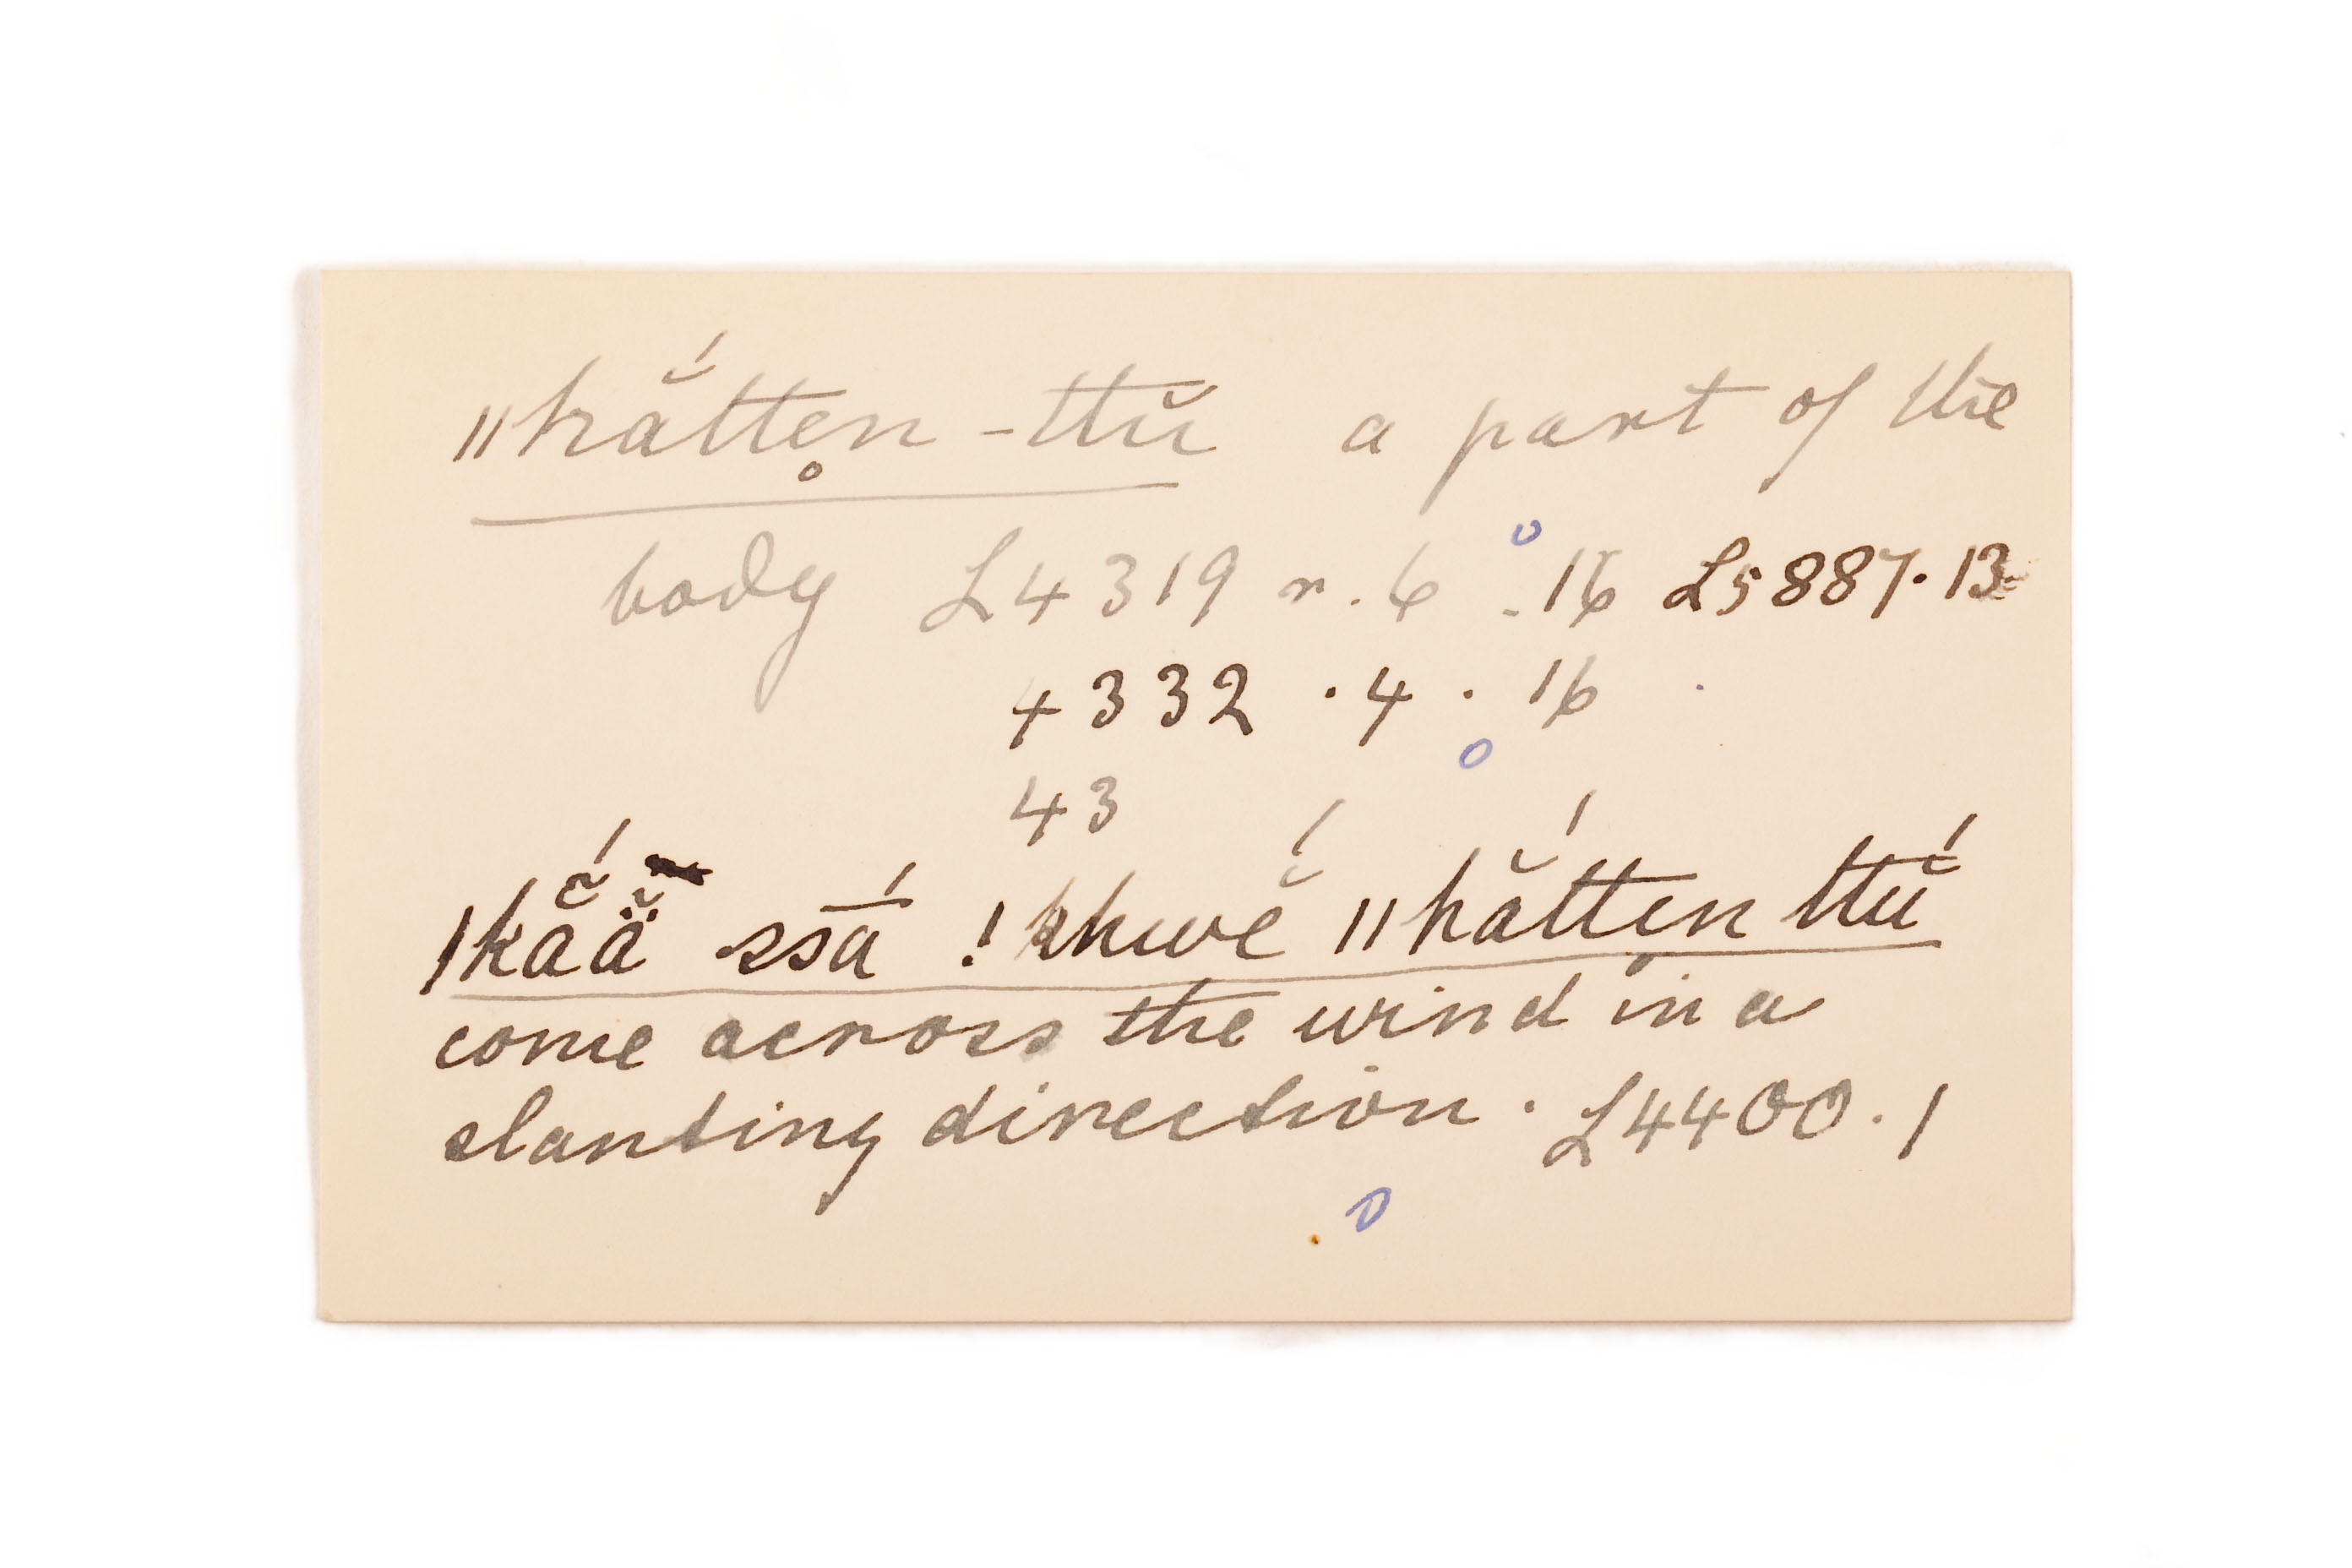 ǁhắtten̥-ttŭ a part of the
body L4319 r. 6 .16 L5887.13
4332 . 4 . 16
43
|kắä̆ ssā́ !khwĕ́ ǁhắtten̥ ttŭ́
come across the wind in a
slanting direction. L4400.1